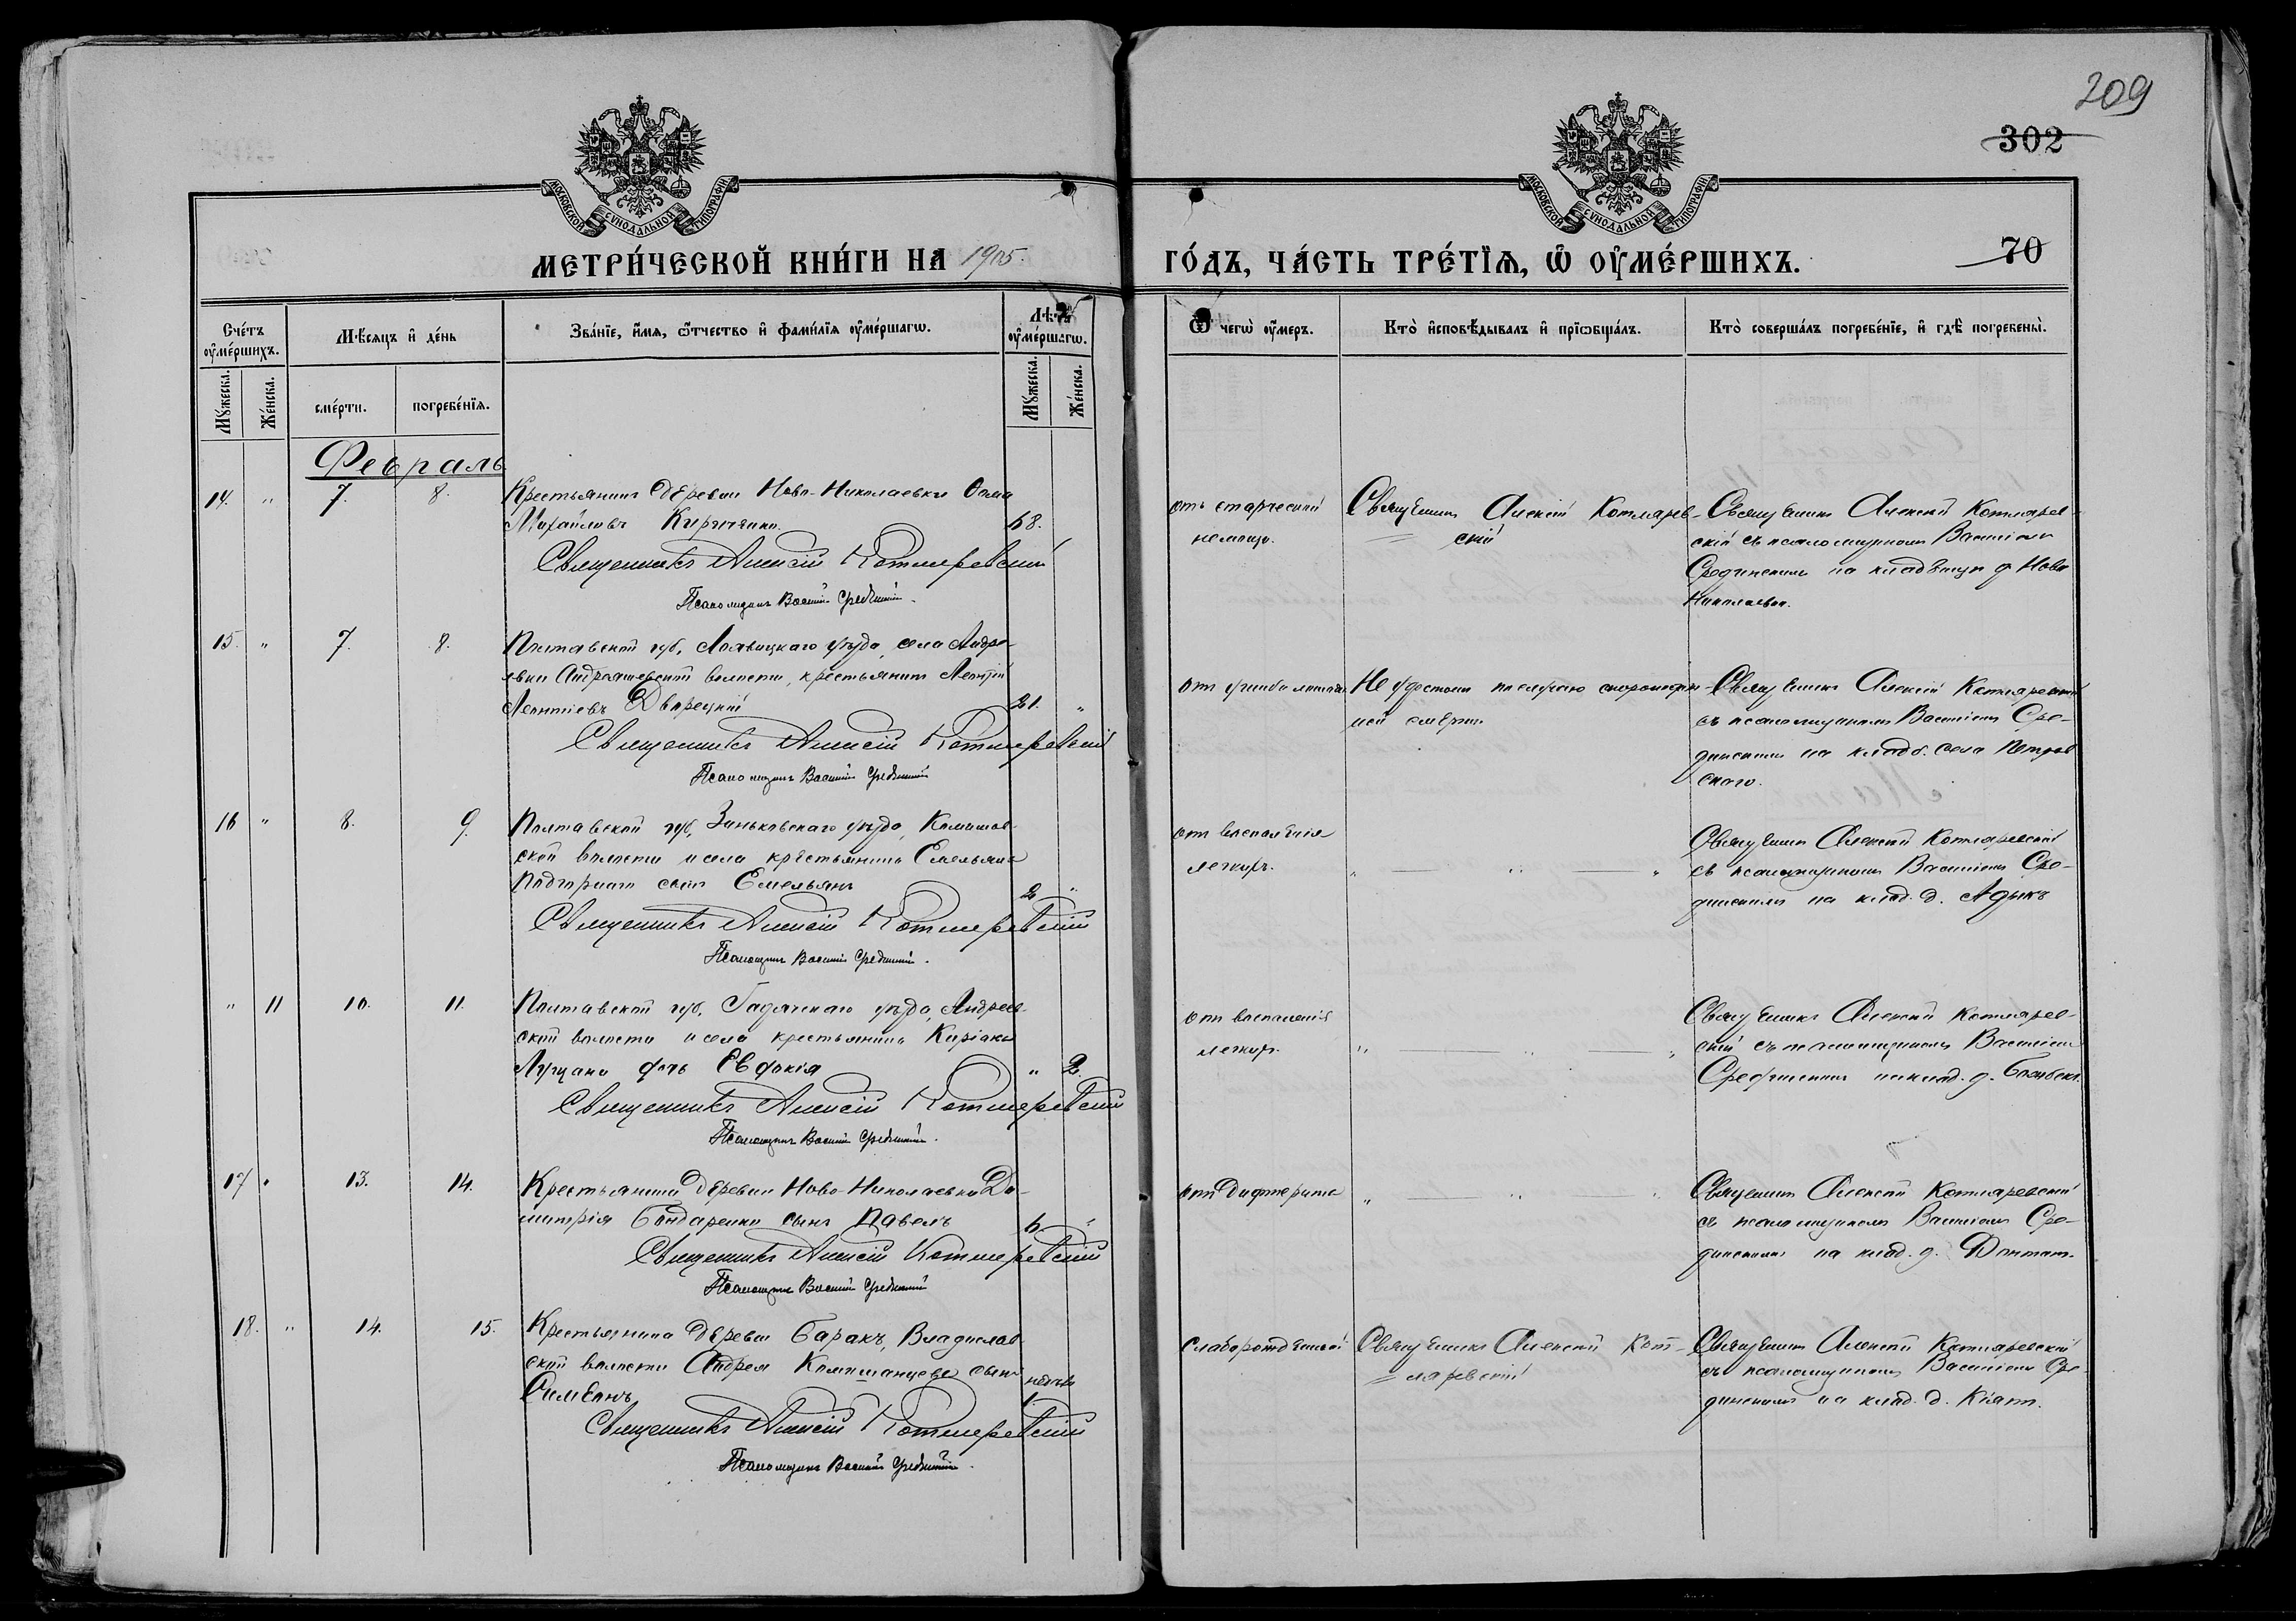 209
302
МОСКОВСКОЙ СѴНОДАЛЬНОЙ ТИПОГРАФІИ
МОСКОВСКОЙ СѴНОДАЛЬНОЙ ТИПОГРАФІИ
МЕТРИ́ЧЕСКОЙ КНИ́ГИ НА 1905.
ГО́ДЪ, ЧА́СТЬ ТРЕ́ТЇѦ, Ѡ҆ ОУ҆МЕ́РШИХЪ.
70
Сче́тъ оу҆ме́ршихъ.
Мѣ́сѧцъ и҆ де́нь
Зва́нїе, и҆́мѧ, ѻ҆́тчество и҆ фами́лїѧ оу҆ме́ршагѡ.
Лѣ́та оу҆ме́ршагѡ.
Ѿ чегѡ̀ оу҆́меръ.
Кто̀ и҆сповѣ́дывалъ и҆ прїѡбща́лъ.
Кто̀ соверша́лъ погребе́нїе, и҆ гдѣ̀ погребены̀.
Мꙋ́жеска.
Же́нска.
сме́рти.
погребе́нїѧ.
Мꙋ́жеска.
Же́нска.
Февраль
14. " 7. 8.
Крестьянинъ деревни Ново-Николаевки Ѳома
Михайловъ Кириченко. 68.
Священникъ Алексій Котляревскій
Псаломщикъ Василій Срединскій.
отъ старческой
немощи.
Священникъ Алексій Котлярев-
скій
Священникъ Алексій Котлярев-
скій съ псаломщикомъ Василіемъ
Срединскимъ на кладбищѣ д. Ново
Николаевки.
15. " 7. 8.
Полтавской губ., Лохвицкаго уѣзда, села Андре-
евки Андреяшевской волости, крестьянинъ Леонтій
Леонтіевъ Дворецкій 21. "
Священникъ Алексій Котляревскій
Псаломщикъ Василій Срединскій
Не удостоенъ по случаю скоропостиж-
ной смерти.
Священникъ Алексій Котляревскій
съ псаломщикомъ Василіемъ Сре-
динскимъ на кладб. села Петров
скаго.
16 " 8. 9.
Полтавской губ., Зиньковскаго уѣзда, Комышов-
ской волости и села крестьянина Емельяна
Подгорнаго сынъ Емельянъ 2 "
Священникъ Алексій Котляревскій
Псаломщикъ Василій Срединскій.
отъ воспаленія
легкихъ.
" — " — "
Священникъ Алексій Котляревскій
съ псаломщикомъ Василіемъ Сре-
динскимъ на клад. д. Адыкъ
" 11 10. 11.
Полтавской губ., Гадячскаго уѣзда, Андреев-
ской волости и села крестьянина Киріака
Лущана дочь Евдокія " 2.
Священникъ Алексій Котляревскій
Псаломщикъ Василій Срединскій.
отъ воспаленія
легкихъ.
" — " — "
Священникъ Алексій Котлярев-
скій съ псаломщикомъ Василіемъ
Срединскимъ на клад. д.
17 " 13. 14.
Крестьянина деревни Ново-Николаевки Ди-
митрія Бондаренко сынъ Павелъ 6 "
Священникъ Алексій Котляревскій
Псаломщикъ Василій Срединскій
отъ дифтерита
" — " "
Священникъ Алексій Котляревскій
съ псаломщикомъ Василіемъ Сре-
динскимъ на клад. д.
18. " 14. 15.
Крестьянина деревни Баракъ, Владислав-
ской волости Андрея сынъ
Симеонъ
Священникъ Алексій Котляревскій
Псаломщикъ Василій Срединскій.
Священникъ Алексій Кот-
ляревскій
Священникъ Алексій Котляревскій
съ псаломщикомъ Василіемъ Сре-
динскимъ на клад. д. Кіятъ.